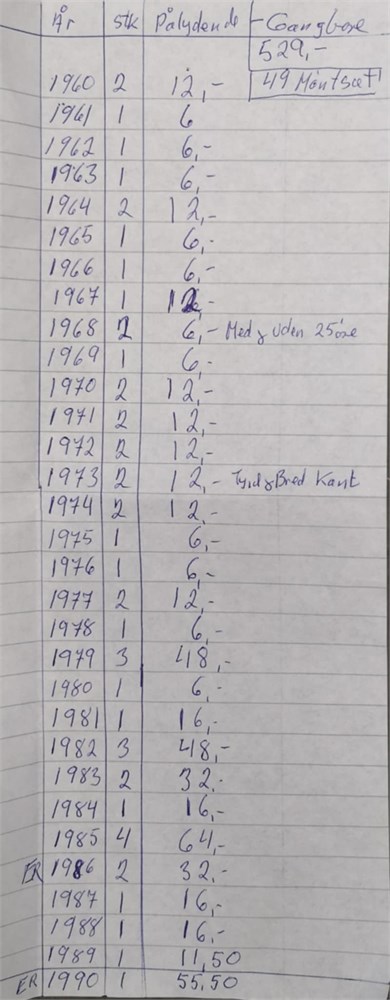 År stk Pålydende - Gangbare
529,-
1960 2 12,- 49 Møntsæt
1961 1 6
1962 1 6,-
1963 1 6,-
1964 2 12,-
1965 1 6,-
1966 1 6,-
1967 1 12,-
1968 2 6,- Med & uden 25 øre
1969 1 6,-
1970 2 12,-
1971 2 12,-
1972 2 12,-
1973 2 12,- Tynd & Bred Kant
1974 2 12,-
1975 1 6,-
1976 1 6,-
1977 2 12,-
1978 1 6,-
1979 3 48,-
1980 1 6,-
1981 1 16,-
1982 3 48,-
1983 2 32,-
1984 1 16,-
1985 4 64,-
ER 1986 2 32,-
1987 1 16,-
1988 1 16,-
1989 1 11,50
ER 1990 1 55,50